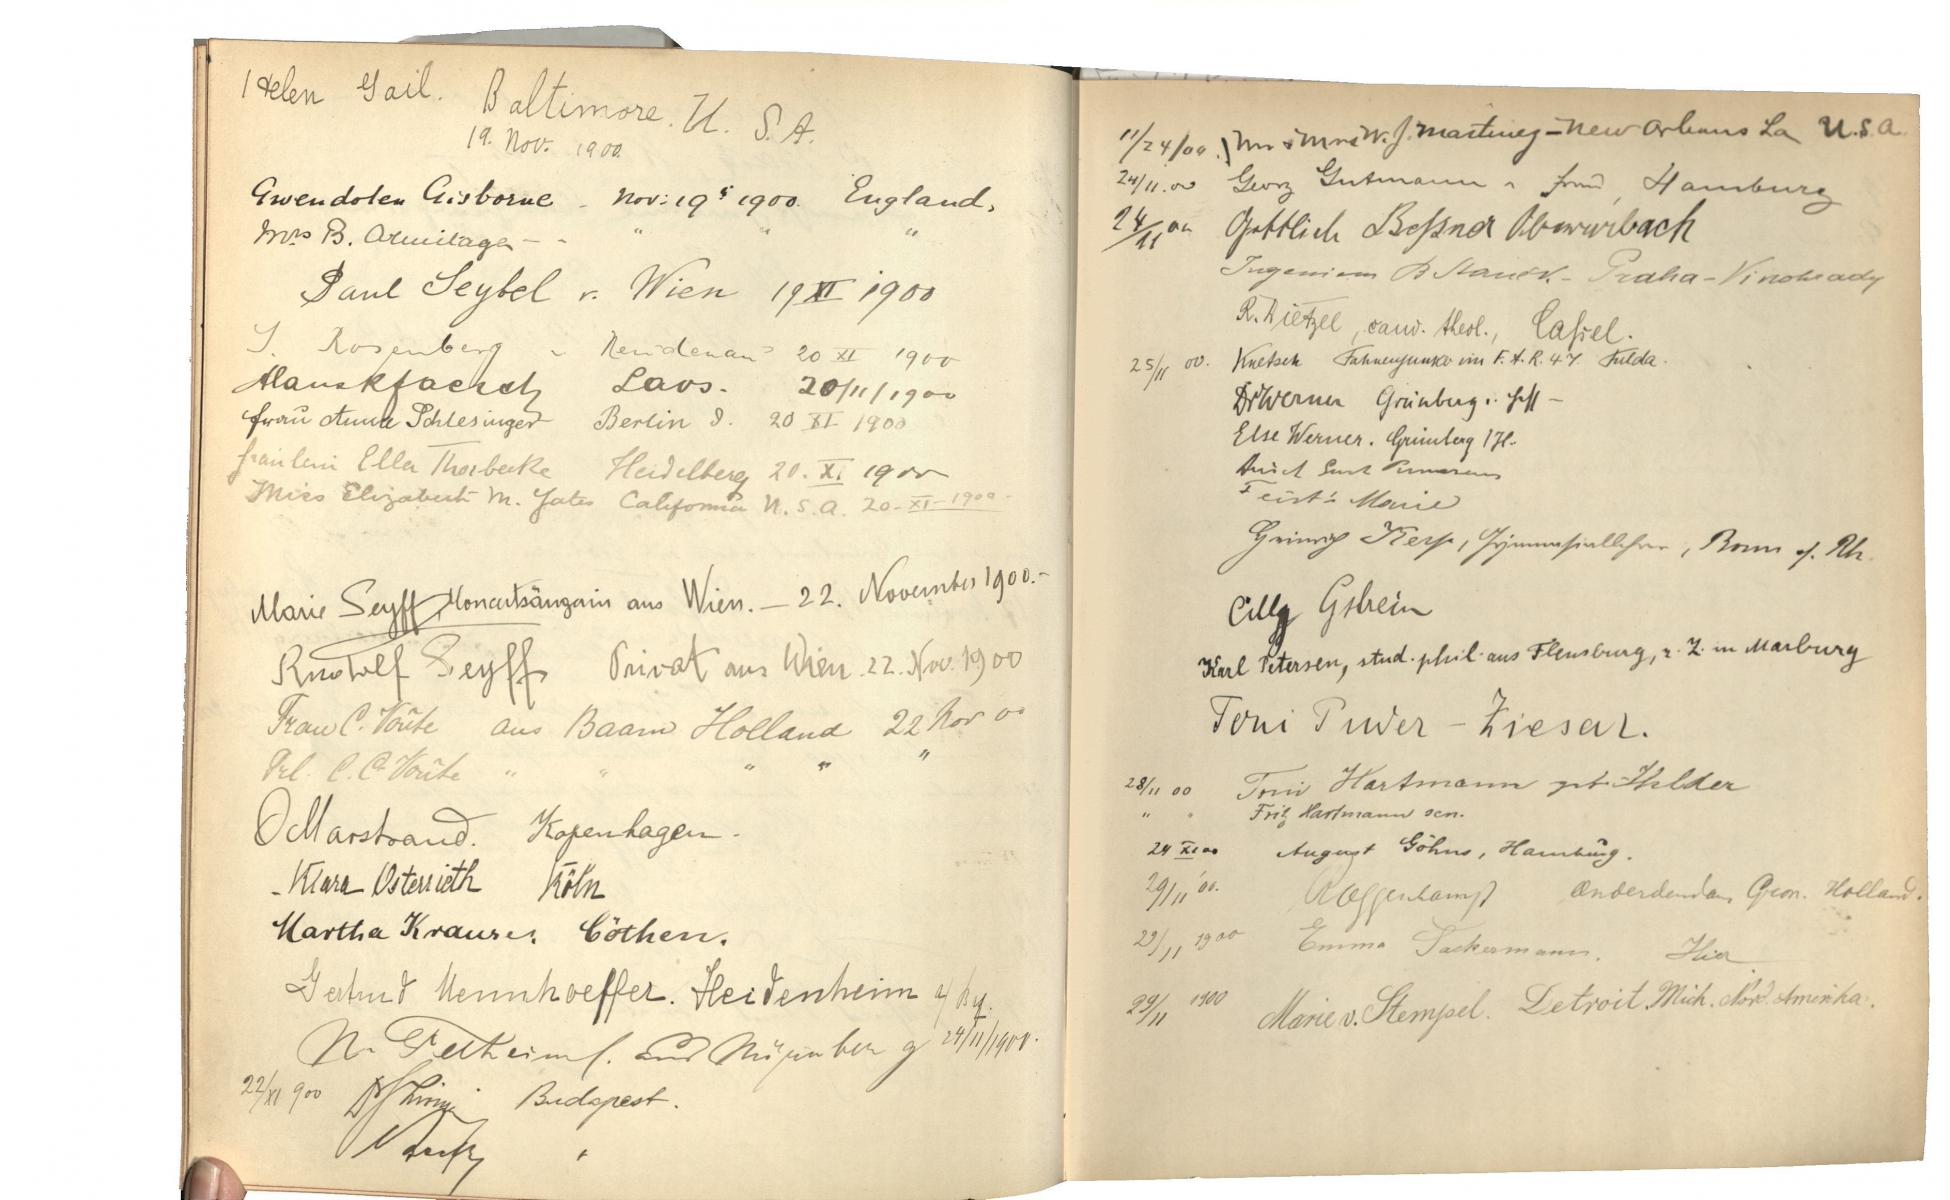 Helen Gail. Baltimore. U. S. A.
19. Nov. 1900.
Gwendolen Gisborne - Nov: 19 1900. England.
Mrs B. Armitage - - " " "
Paul Seybel v. Wien 19 XI 1900
Rosenberg 20 XI 1900
20/11/1900
Frau Anna Schlesinger Berlin 20 XI 1900
Fräulein Ella Thorbecke Heidelberg 20. XI. 1900
Miss Elizabeth M. Yates California U. S. A. 20-XI-1900-
Marie Seyff, Konzertsängerin aus Wien. — 22. November 1900.-
Rudolf Seyff Privat aus Wien. 22. Nov. 1900
Frau C. Voûte aus Baarn Holland 22 Nov 00
Frl. C. C. Voûte " " " " "
O Marstrand. Kopenhagen.
Klara Osterrieth Köln
Martha Krause. Cöthen.
Gertrud Heidenheim a/ By.
24/11/1900.
22/XI 900 Budapest.
"
11/24/00. Mr & Mrs W. J. Martinez - New Orleans La U.S.A.
24/11.00 Georg Gutmann u. Frau, Hamburg
24/11 00 Gottlich
Praha - Vinohrady
R. Dietzel, cand. theol., Cassel.
25/11 00. Fahnenjunker im F. A. R. 47 Fulda.
Dr Werner Grünberg
Else Werner. Grünberg
Marie
Heinrich Gymnasiallehrer, Bonn a. Rh.
Cilly Gstrein
Karl Petersen, stud. phil. aus Flensburg, z. Z. in Marburg
Toni Puder - Ziesar.
28/11 00 Toni Hartmann geb.
" " Fritz Hartmann sen.
24 XI 00 August Göhns, Hamburg.
29/11 '00. Holland.
29/11 1900 Emma Tackermann. Hier
29/11 1900 Marie v. Stempel. Detroit. Mich. Nord. Amerika.